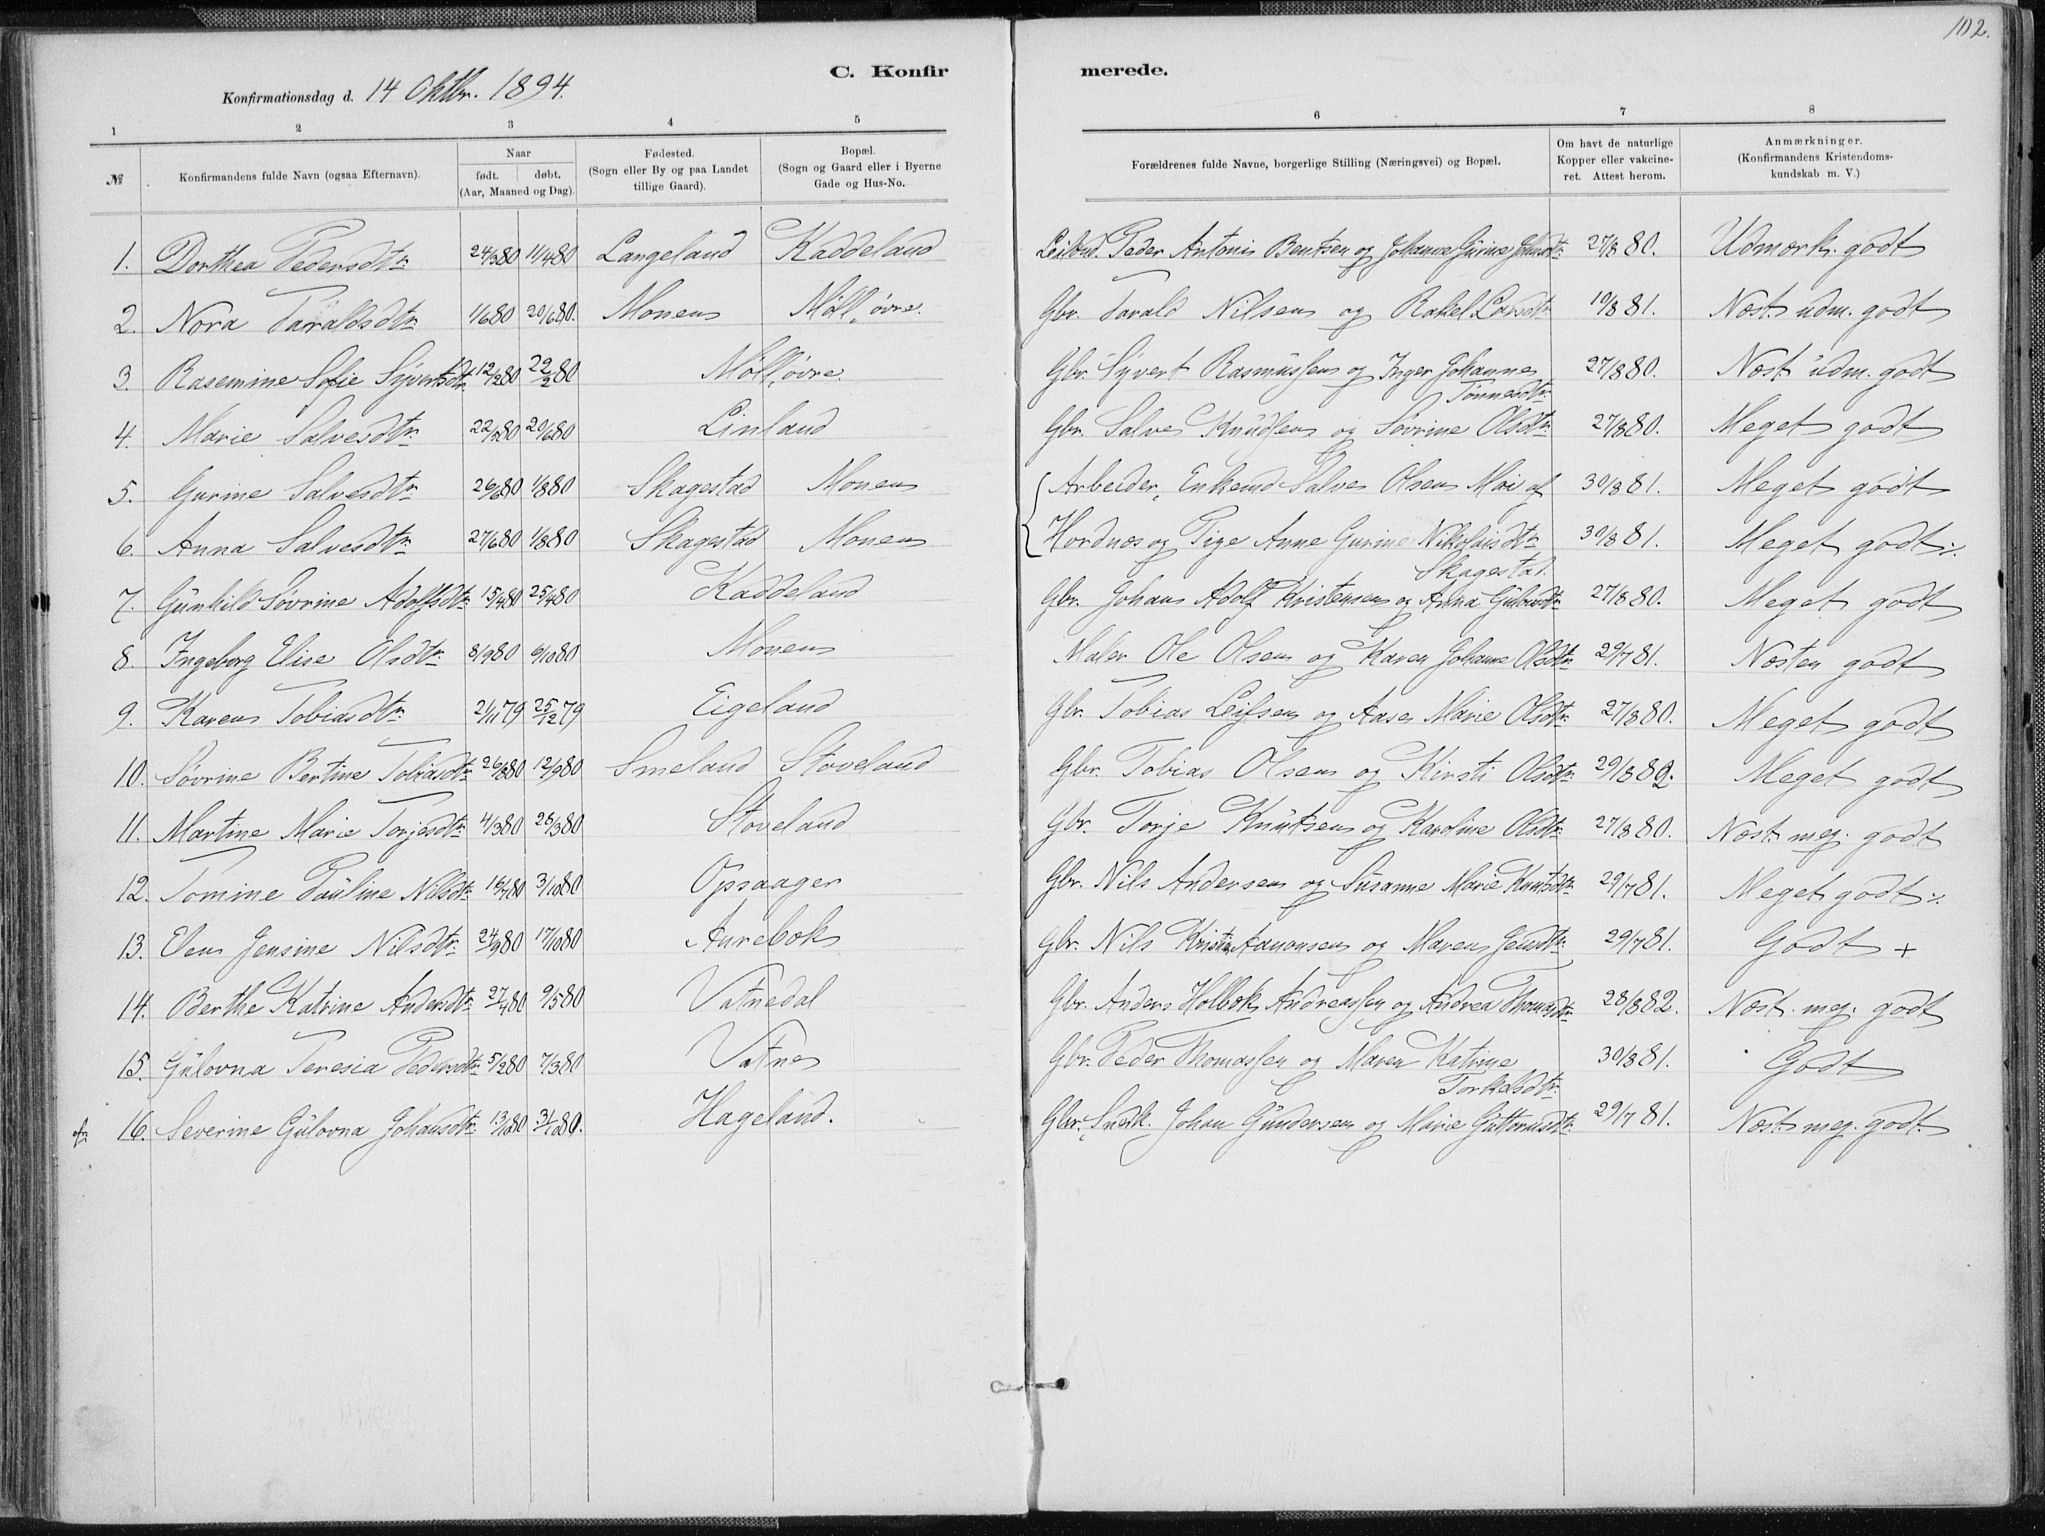 102.
C. Konfirmerede.
Konfirmationsdag d. 14 Oktbr. 1894.
1 2 3 4 5 6 7 8
№ Konfirmandens fulde Navn (ogsaa Efternavn). Naar født. døbt. (Aar, Maaned og Dag). Fødested. (Sogn eller By og paa Landet tillige Gaard). Bopæl. (Sogn og Gaard eller i Byerne Gade og Hus-No. Forældrenes fulde Navne, borgerlige Stilling (Næringsvei) og Bopæl. Om havt de naturlige Kopper eller vakcineret. Attest herom. Anmærkninger. (Konfirmandens Kristendomskundskab m. V.)
1. Dorthea Pedersdtr. 24/3 80 11/4 80 Langeland Kaddeland Leilænd. Peder Antonis Bentsen og Johanne Gurine 27/8 80. Udmærk. godt
2. Nora Taraldsdtr. 1/6 80 20/6 80. Monen Möll, övre. Gbr. Tarald Nilsen og Rakel Larsdtr. 19/8 81. Næst. udm. godt
3. Rasemine Sofie Syvertsdtr. 12/2 80 22/2 80 Möll, övre. Gbr. Syvert Rasmussen og Inger Johanne Tönnesdtr. 27/8 80. Næst. udm. godt
4. Marie Salvesdtr. 22/5 80 20/6 80 Linland Gbr. Salve Knudsen og Sövrine Olsdtr. 27/8 80. Meget godt
5. Gurine Salvesdtr. 26/6 80 1/8 80 Skagestad Monen Arbeider, Enkemd Salve Olsen Moi af 30/8 81. Meget godt
6. Anna Salvesdtr. 27/6 80 1/8 80 Skagestad Monen Hordnes og Pige Anne Gurine Nikolaisdtr. Skagestad. 30/8 81. Meget godt ⁒
7. Gunhild Sövrine Adolfsdtr. 15/4 80 25/4 80 Kaddeland Gbr. Johan Adolf Kristensen og Anna 27/8 80. Meget godt
8. Ingeborg Elise Olsdtr. 8/9 80 6/10 80 Monen Maler Ole Olsen og Karen Johanne Olsdtr. 29/7 81. Næsten godt
9. Karen Tobiasdtr. 21/11 79 25/12 79 Eigeland Gbr. Tobias Leifsen og Aase Marie Olsdtr. 27/8 80. Meget godt
10. Sövrine Bertine Tobiasdtr. 26/8 80 12/9 80 Smeland Stöveland Gbr. Tobias Olsen og Kirsti Olsdtr. 29/8 82. Meget godt
11. Martine Marie Torjesdtr. 4/3 80 26/3 80 Stoveland Gbr. Torje Knutsen og Karoline Olsdtr. 27/8 80. Næst. meg. godt
12. Tomine Pauline Nilsdtr. 16/7 80 3/10 80 Opsaager Gbr. Nils Andersen og Susanne Marie Knutsdtr. 29/7 81. Meget godt ⁒
13. Elen Jensine Nilsdtr. 24/9 80 17/10 80 Aurebok Gbr. Nils Kristian Aanonsen og Maren Jensdtr. 29/7 81. Godt +
14. Berthe Katrine Andersdtr. 27/4 80 9/5 80 Vatnedal Gbr. Anders Holbok Andreassen og Andrea Thomasdtr. 28/8 82. Næst. meg. godt
15. Gulovna Teresia Pedersdtr. 5/2 80 7/3 80 Vatne Gbr. Peder Thomassen og Maren Katrine Torkelsdtr. 30/8 81. Godt
16. Severine Gulovna Johansdtr. 13/10 80 31/10 80. Hageland. Gbr., Snedk. Johan Gundersen og Marie Guttormsdtr. 29/7 81. Næst. meg. godt.